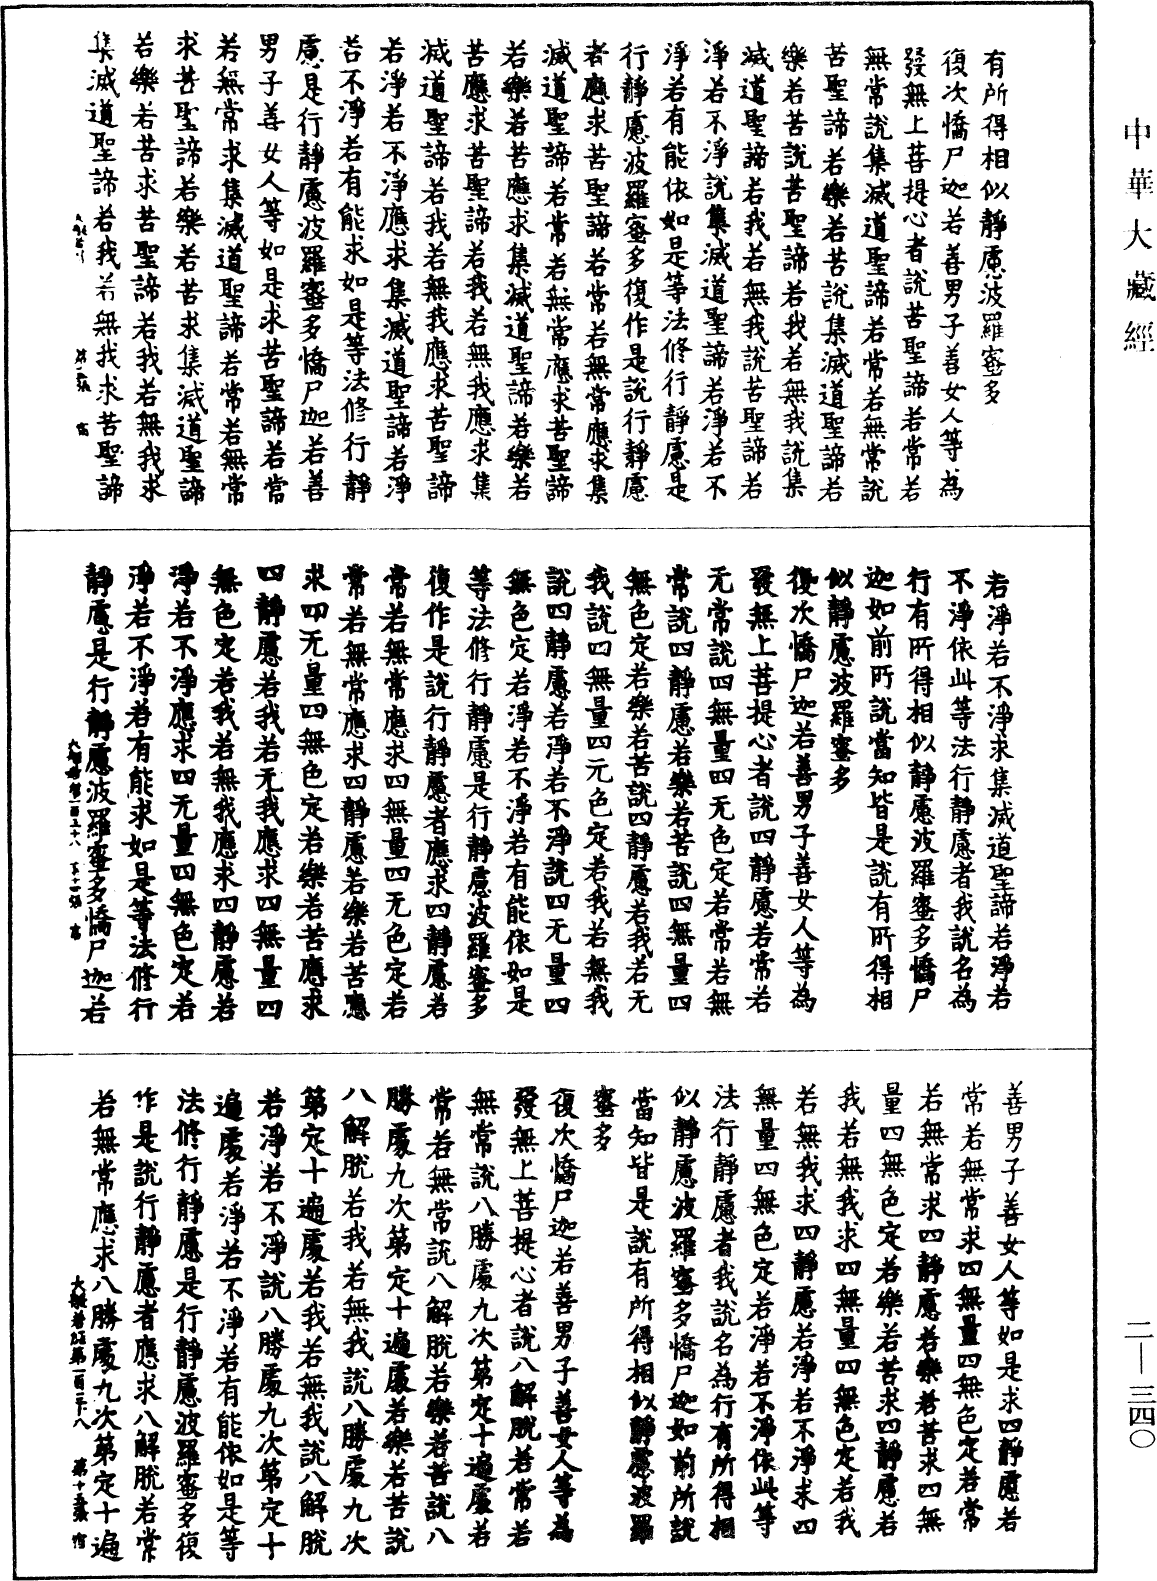 中華大藏經
有所得相似靜慮波羅蜜多
復次憍尸迦若善男子善女人等為
發無上菩提心者說苦聖諦若常若
無常說集滅道聖諦若常若無常說
苦聖諦若樂若苦說集滅道聖諦若
樂若苦說苦聖諦若我若無我說集
滅道聖諦若我若無我說苦聖諦若
淨若不淨說集滅道聖諦若淨若不
淨若有能依如是等法修行靜慮是
行靜慮波羅蜜多復作是說行靜慮
者應求苦聖諦若常若無常應求集
滅道聖諦若常若無常應求苦聖諦
若樂若苦應求集滅道聖諦若樂若
苦應求苦聖諦若我若無我應求集
滅道聖諦若我若無我應求苦聖諦
若淨若不淨應求集滅道聖諦若淨
若不淨若有能求如是等法修行靜
慮是行靜慮波羅蜜多憍尸迦若善
男子善女人等如是求苦聖諦若常
若無常求集滅道聖諦若常若無常
求苦聖諦若樂若苦求集滅道聖諦
若樂若苦求苦聖諦若我若無我求
集滅道聖諦若我若無我求苦聖諦
若淨若不淨求集滅道聖諦若淨若
不淨依此等法行靜慮者我說名為
行有所得相似靜慮波羅蜜多憍尸
迦如前所說當知皆是說有所得相
似靜慮波羅蜜多
復次憍尸迦若善男子善女人等為
發無上菩提心者說四靜慮若常若
无常說四無量四无色定若常若無
常說四靜慮若樂若苦說四無量四
無色定若樂若苦說四靜慮若我若无
我說四無量四元色定若我若無我
說四靜慮若淨若不淨說四无量四
無色定若淨若不淨若有能依如是
等法修行靜慮是行靜慮波羅蜜多
復作是說行靜慮者應求四靜慮若
常若無常應求四無量四无色定若
常若無常應求四靜慮若樂若苦應
求四无量四無色定若樂若苦應求
四靜慮若我若无我應求四無量四
無色定若我若無我應求四靜慮若
淨若不淨應求四无量四無色定若
淨若不淨若有能求如是等法修行
靜慮是行靜慮波羅蜜多憍尸迦若
善男子善女人等如是求四靜慮若
常若無常求四無量四無色定若常
若無常求四靜慮若樂若苦求四無
量四無色定若樂若苦求四靜慮若
我若無我求四無量四無色定若我
若無我求四靜慮若淨若不淨求四
無量四無色定若淨若不淨依此等
法行靜慮者我說名為行有所得相
似靜慮波羅蜜多憍尸迦如前所說
當知皆是說有所得相似靜慮波羅
蜜多
復次憍尸迦若善男子善女人等為
發無上菩提心者說八解脫若常若
無常說八勝處九次第定十遍處若
常若無常說八解脫若樂若苦說八
勝處九次第定十遍處若樂若苦說
八解脫若我若無我說八勝處九次
第定十遍處若我若無我說八解脫
若淨若不淨說八勝處九次第定十
遍處若淨若不淨若有能依如是等
法修行靜慮是行靜慮波羅蜜多復
作是說行靜慮者應求八解脫若常
若無常應求八勝處九次第定十遍
二—三四〇